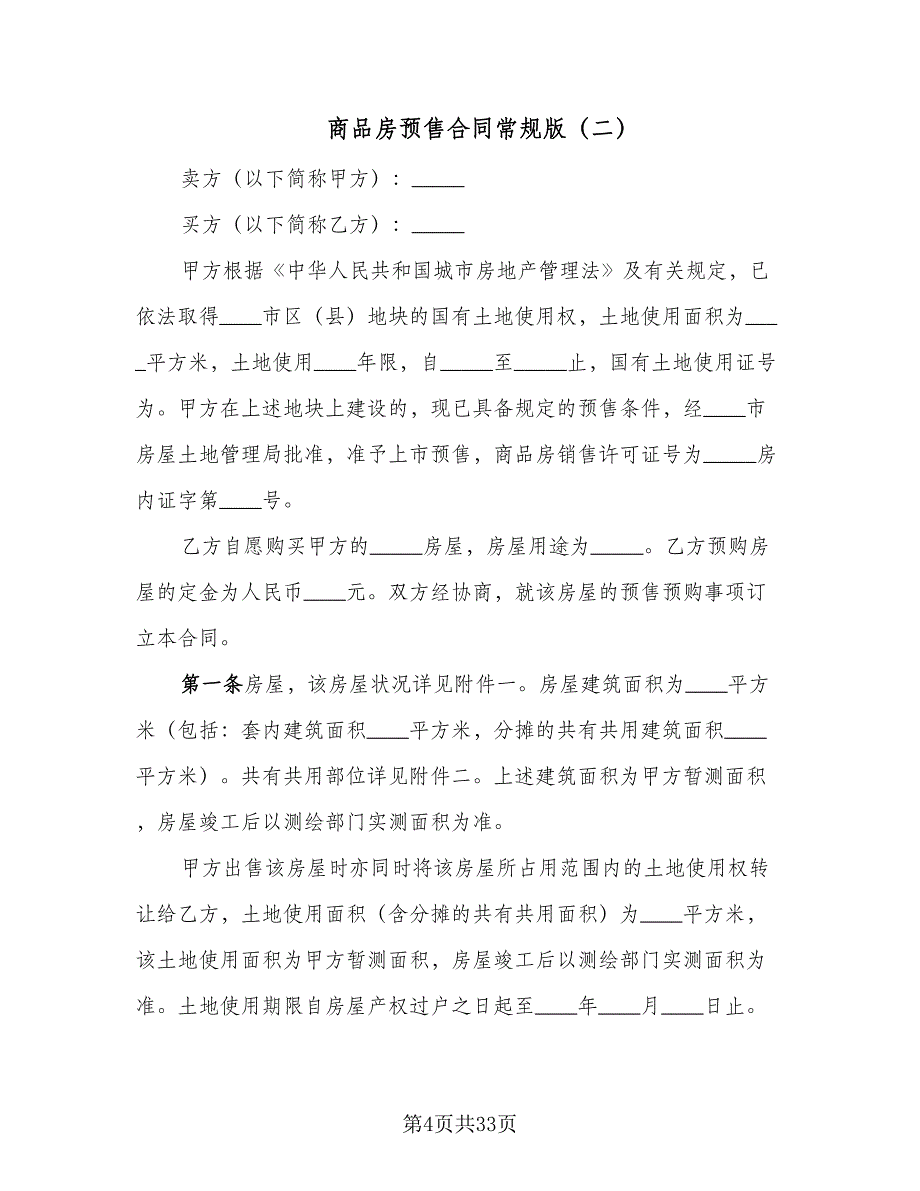 商品房预售合同常规版（二）
卖方（以下简称甲方）：_____
买方（以下简称乙方）：_____
甲方根据《中华人民共和国城市房地产管理法》及有关规定，已
依法取得____市区（县）地块的国有土地使用权，土地使用面积为___
_平方米，土地使用____年限，自_____至_____止，国有土地使用证号
为。甲方在上述地块上建设的，现已具备规定的预售条件，经____市
房屋土地管理局批准，准予上市预售，商品房销售许可证号为_____房
内证字第____号。
乙方自愿购买甲方的_____房屋，房屋用途为_____。乙方预购房
屋的定金为人民币____元。双方经协商，就该房屋的预售预购事项订
立本合同。
第一条房屋，该房屋状况详见附件一。房屋建筑面积为____平方
米（包括：套内建筑面积____平方米，分摊的共有共用建筑面积____
平方米）。共有共用部位详见附件二。上述建筑面积为甲方暂测面积
，房屋竣工后以测绘部门实测面积为准。
甲方出售该房屋时亦同时将该房屋所占用范围内的土地使用权转
让给乙方，土地使用面积（含分摊的共有共用面积）为____平方米，
该土地使用面积为甲方暂测面积，房屋竣工后以测绘部门实测面积为
准。土地使用期限自房屋产权过户之日起至____年____月____日止。
第4页共33页